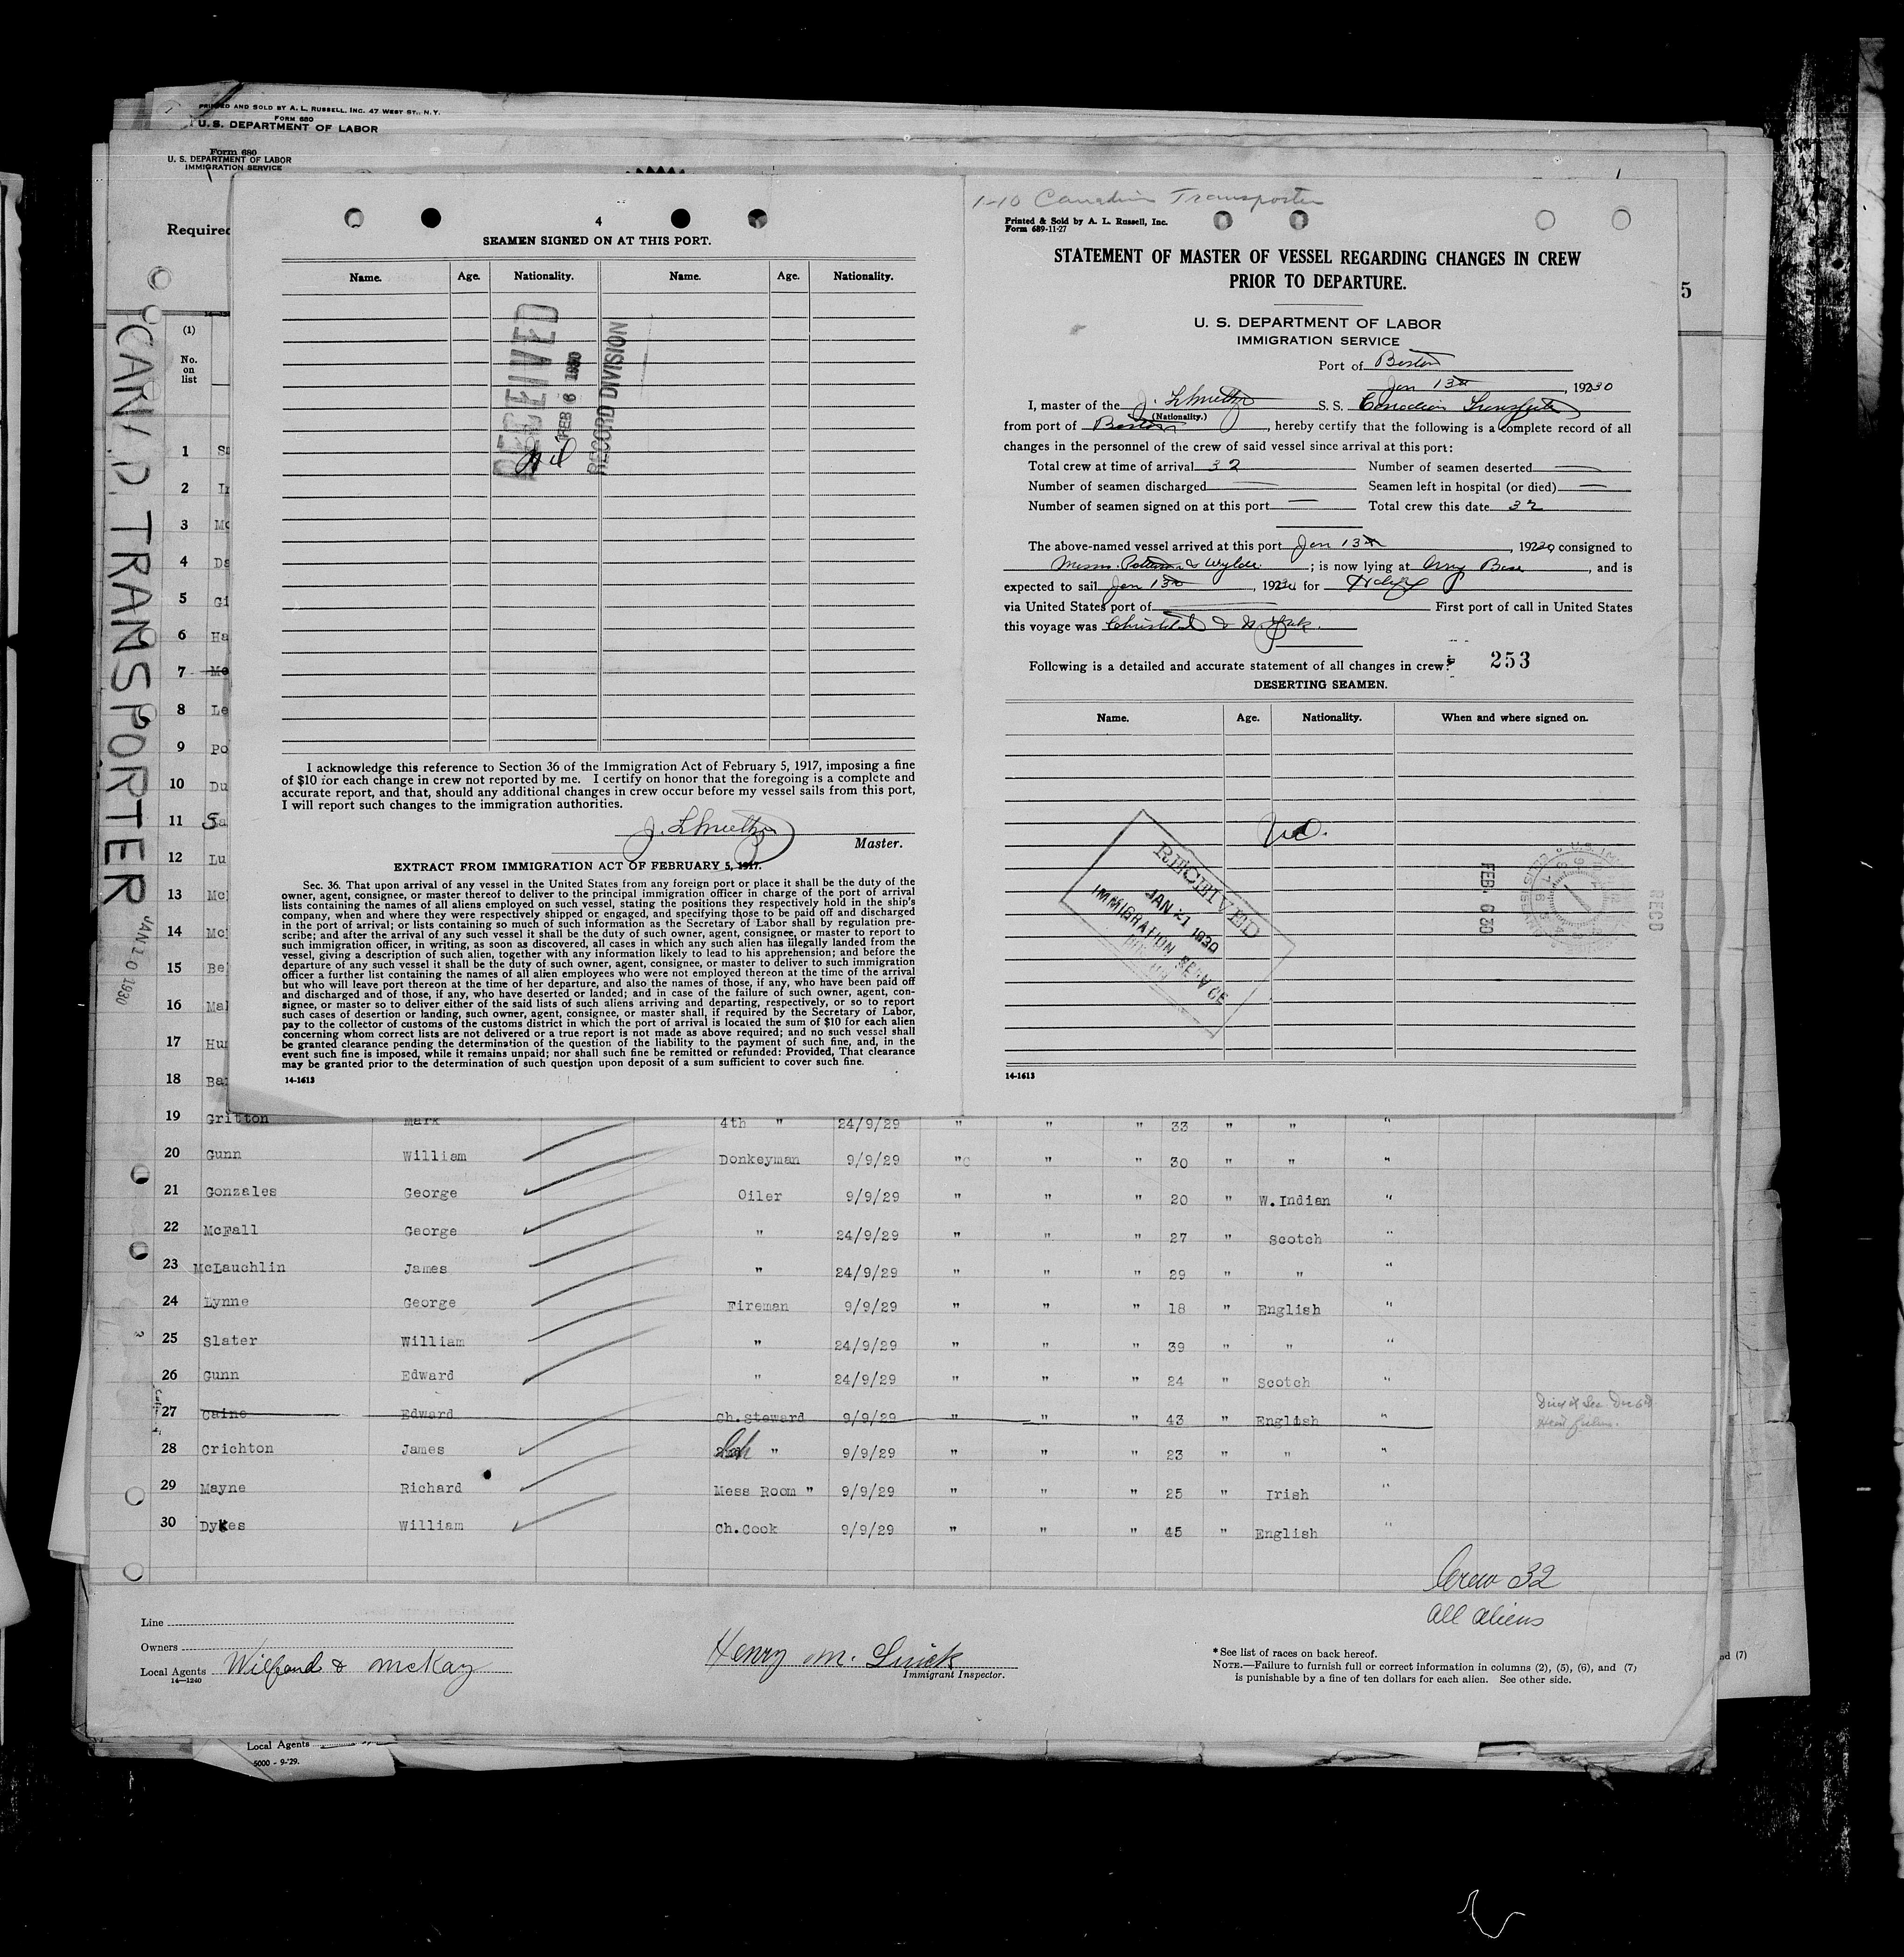 PRINTED AND SOLD BY A. L. RUSSELL, INC. 47 WEST ST., N.Y.
FORM 680
U. S. DEPARTMENT OF LABOR
Form 680
U. S. DEPARTMENT OF LABOR
IMMIGRATION SERVICE
Required
(1)
No.
on
list
CAN'D. TRANSPORTER
JAN 10 1930
5
4
SEAMEN SIGNED ON AT THIS PORT.
Name. Age. Nationality. Name. Age. Nationality.
RECEIVED
FEB 6 1930
RECORD DIVISION
Nil
I acknowledge this reference to Section 36 of the Immigration Act of February 5, 1917, imposing a fine
of $10 for each change in crew not reported by me. I certify on honor that the foregoing is a complete and
accurate report, and that, should any additional changes in crew occur before my vessel sails from this port,
I will report such changes to the immigration authorities.
Master.
EXTRACT FROM IMMIGRATION ACT OF FEBRUARY 5, 1917.
Sec. 36. That upon arrival of any vessel in the United States from any foreign port or place it shall be the duty of the
owner, agent, consignee, or master thereof to deliver to the principal immigration officer in charge of the port of arrival
lists containing the names of all aliens employed on such vessel, stating the positions they respectively hold in the ship's
company, when and where they were respectively shipped or engaged, and specifying those to be paid off and discharged
in the port of arrival; or lists containing so much of such information as the Secretary of Labor shall by regulation pre-
scribe; and after the arrival of any such vessel it shall be the duty of such owner, agent, consignee, or master to report to
such immigration officer, in writing, as soon as discovered, all cases in which any such alien has illegally landed from the
vessel, giving a description of such alien, together with any information likely to lead to his apprehension; and before the
departure of any such vessel it shall be the duty of such owner, agent, consignee, or master to deliver to such immigration
officer a further list containing the names of all alien employees who were not employed thereon at the time of the arrival
but who will leave port thereon at the time of her departure, and also the names of those, if any, who have been paid off
and discharged and of those, if any, who have deserted or landed; and in case of the failure of such owner, agent, con-
signee, or master so to deliver either of the said lists of such aliens arriving and departing, respectively, or so to report
such cases of desertion or landing, such owner, agent, consignee, or master shall, if required by the Secretary of Labor,
pay to the collector of customs of the customs district in which the port of arrival is located the sum of $10 for each alien
concerning whom correct lists are not delivered or a true report is not made as above required; and no such vessel shall
be granted clearance pending the determination of the question of the liability to the payment of such fine, and, in the
event such fine is imposed, while it remains unpaid; nor shall such fine be remitted or refunded: Provided, That clearance
may be granted prior to the determination of such question upon deposit of a sum sufficient to cover such fine.
14-1613
1-10 Canadian Transporter
Printed & Sold by A. L. Russell, Inc.
Form 689-11-27
STATEMENT OF MASTER OF VESSEL REGARDING CHANGES IN CREW
PRIOR TO DEPARTURE.
U. S. DEPARTMENT OF LABOR
IMMIGRATION SERVICE
Port of Boston
Jan 13th, 1930
I, master of the S. S. Canadian Transporter
(Nationality.)
from port of Boston, hereby certify that the following is a complete record of all
changes in the personnel of the crew of said vessel since arrival at this port:
Total crew at time of arrival 32 Number of seamen deserted —
Number of seamen discharged — Seamen left in hospital (or died) —
Number of seamen signed on at this port — Total crew this date 32
The above-named vessel arrived at this port Jan 13th, 1930 consigned to
Messrs. & Wylde; is now lying at Army Base, and is
expected to sail Jan 13th, 1930 for
via United States port of — First port of call in United States
this voyage was & N. York.
Following is a detailed and accurate statement of all changes in crew: 253
DESERTING SEAMEN.
Name. Age. Nationality. When and where signed on.
RECEIVED
JAN 21 1930
IMMIGRATION SERVICE
FEB 6 30
REC'D
14-1613
1 S
2 I
3 Mc
4 Da
5 Gi
6 Ha
7 Mc
8 Le
9 Po
10 Du
11 Sa
12 Lu
13 Mc
14 Mc
15 Be
16 Ma
17 Hu
18 Ba
19 Gritton Mark 4th " 24/9/29 " " " 33 " " "
20 Gunn William Donkeyman 9/9/29 " " " 30 " " "
21 Gonzales George Oiler 9/9/29 " " " 20 " W.Indian "
22 McFall George " 24/9/29 " " " 27 " Scotch "
23 McLauchlin James " 24/9/29 " " " 29 " " "
24 Lynne George Fireman 9/9/29 " " " 18 " English "
25 Slater William " 24/9/29 " " " 39 " " "
26 Gunn Edward " 24/9/29 " " " 24 " Scotch "
27 Caine Edward Ch.Steward 9/9/29 " " " 43 " English "
28 Crichton James Ch " 9/9/29 " " " 23 " " "
29 Mayne Richard Mess Room " 9/9/29 " " " 25 " Irish "
30 Dykes William Ch.Cook 9/9/29 " " " 45 " English "
Crew 32
all aliens
Line
Owners
Local Agents Wilford & McKay
14—1240
Henry M.
Immigrant Inspector.
* See list of races on back hereof.
NOTE.—Failure to furnish full or correct information in columns (2), (5), (6), and (7)
is punishable by a fine of ten dollars for each alien. See other side.
nd (7)
Local Agents
5000 - 9-'29.